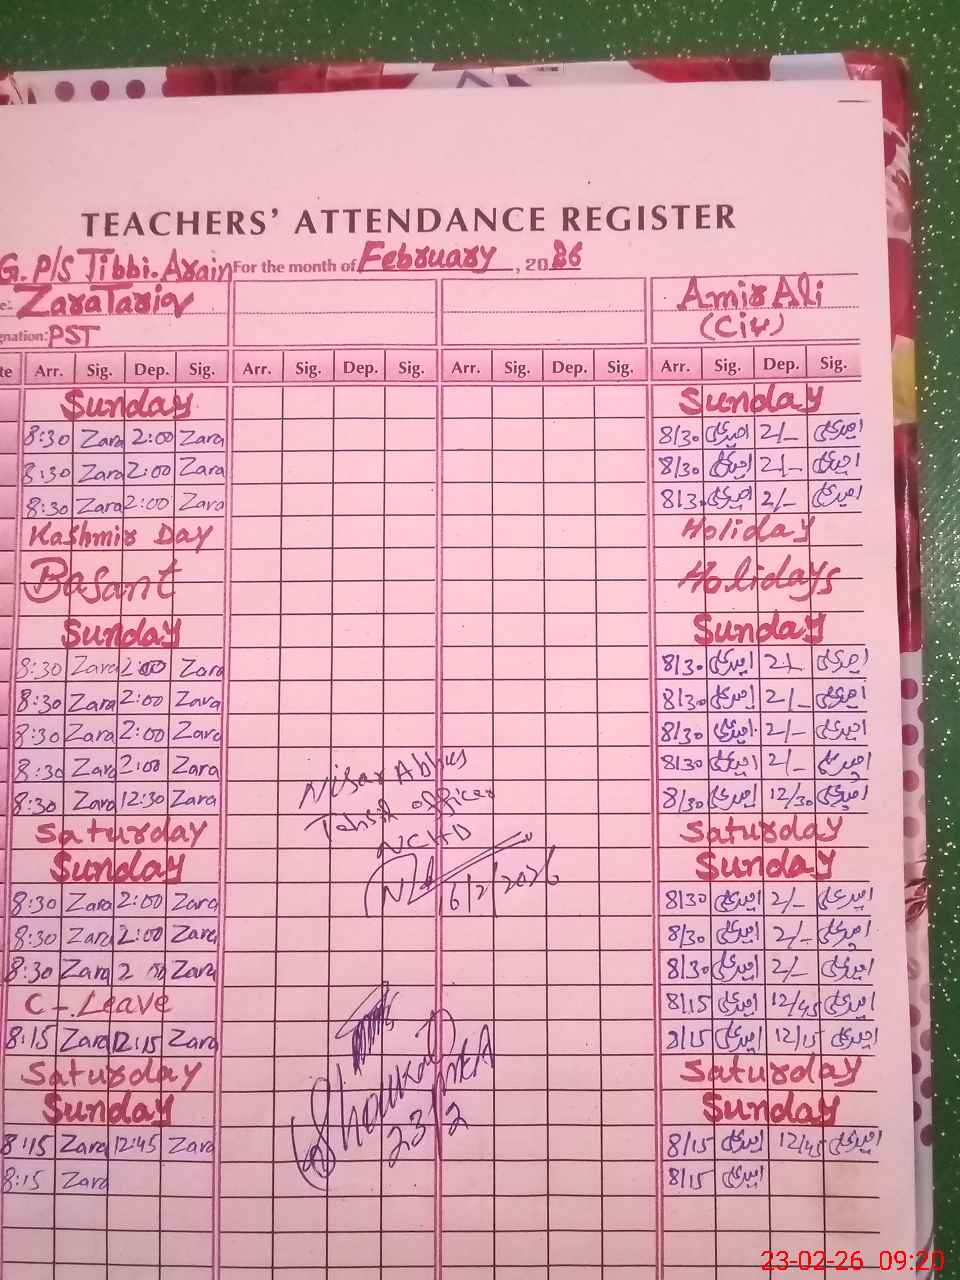 TEACHERS' ATTENDANCE REGISTER
G. P/S Tibbi. Arain For the month of February, 2026
e: Zara Tariq Amir Ali
gnation: PST (Civ)
te Arr. Sig. Dep. Sig. Arr. Sig. Dep. Sig. Arr. Sig. Dep. Sig. Arr. Sig. Dep. Sig.
Sunday Sunday
8:30 Zara 2:00 Zara 8/30 امیر علی 2/- امیر علی
8:30 Zara 2:00 Zara 8/30 امیر علی 2/- امیر علی
8:30 Zara 2:00 Zara 8/30 امیر علی 2/- امیر علی
Kashmir Day Holiday
Basant Holidays
Sunday Sunday
8:30 Zara 2:00 Zara 8/30 امیر علی 2/- امیر علی
8:30 Zara 2:00 Zara 8/30 امیر علی 2/- امیر علی
8:30 Zara 2:00 Zara 8/30 امیر علی 2/- امیر علی
8:30 Zara 2:00 Zara 8/30 امیر علی 2/- امیر علی
8:30 Zara 12:30 Zara 8/30 امیر علی 12/30 امیر علی
Nisar Abbas
Tehsil officer
NCHD
Saturday Saturday
Sunday Sunday
16/2/2026
8:30 Zara 2:00 Zara 8/30 امیر علی 2/- امیر علی
8:30 Zara 2:00 Zara 8/30 امیر علی 2/- امیر علی
8:30 Zara 2 00 Zara 8/30 امیر علی 2/- امیر علی
C-Leave 8/15 امیر علی 12/45 امیر علی
8:15 Zara 12:15 Zara 8/15 امیر علی 12/15 امیر علی
Saturday Saturday
Sunday Sunday
Shoukat MEA
23/2
8:15 Zara 12:45 Zara 8/15 امیر علی 12/45 امیر علی
8:15 Zara 8/15 امیر علی
23-02-26 09:20